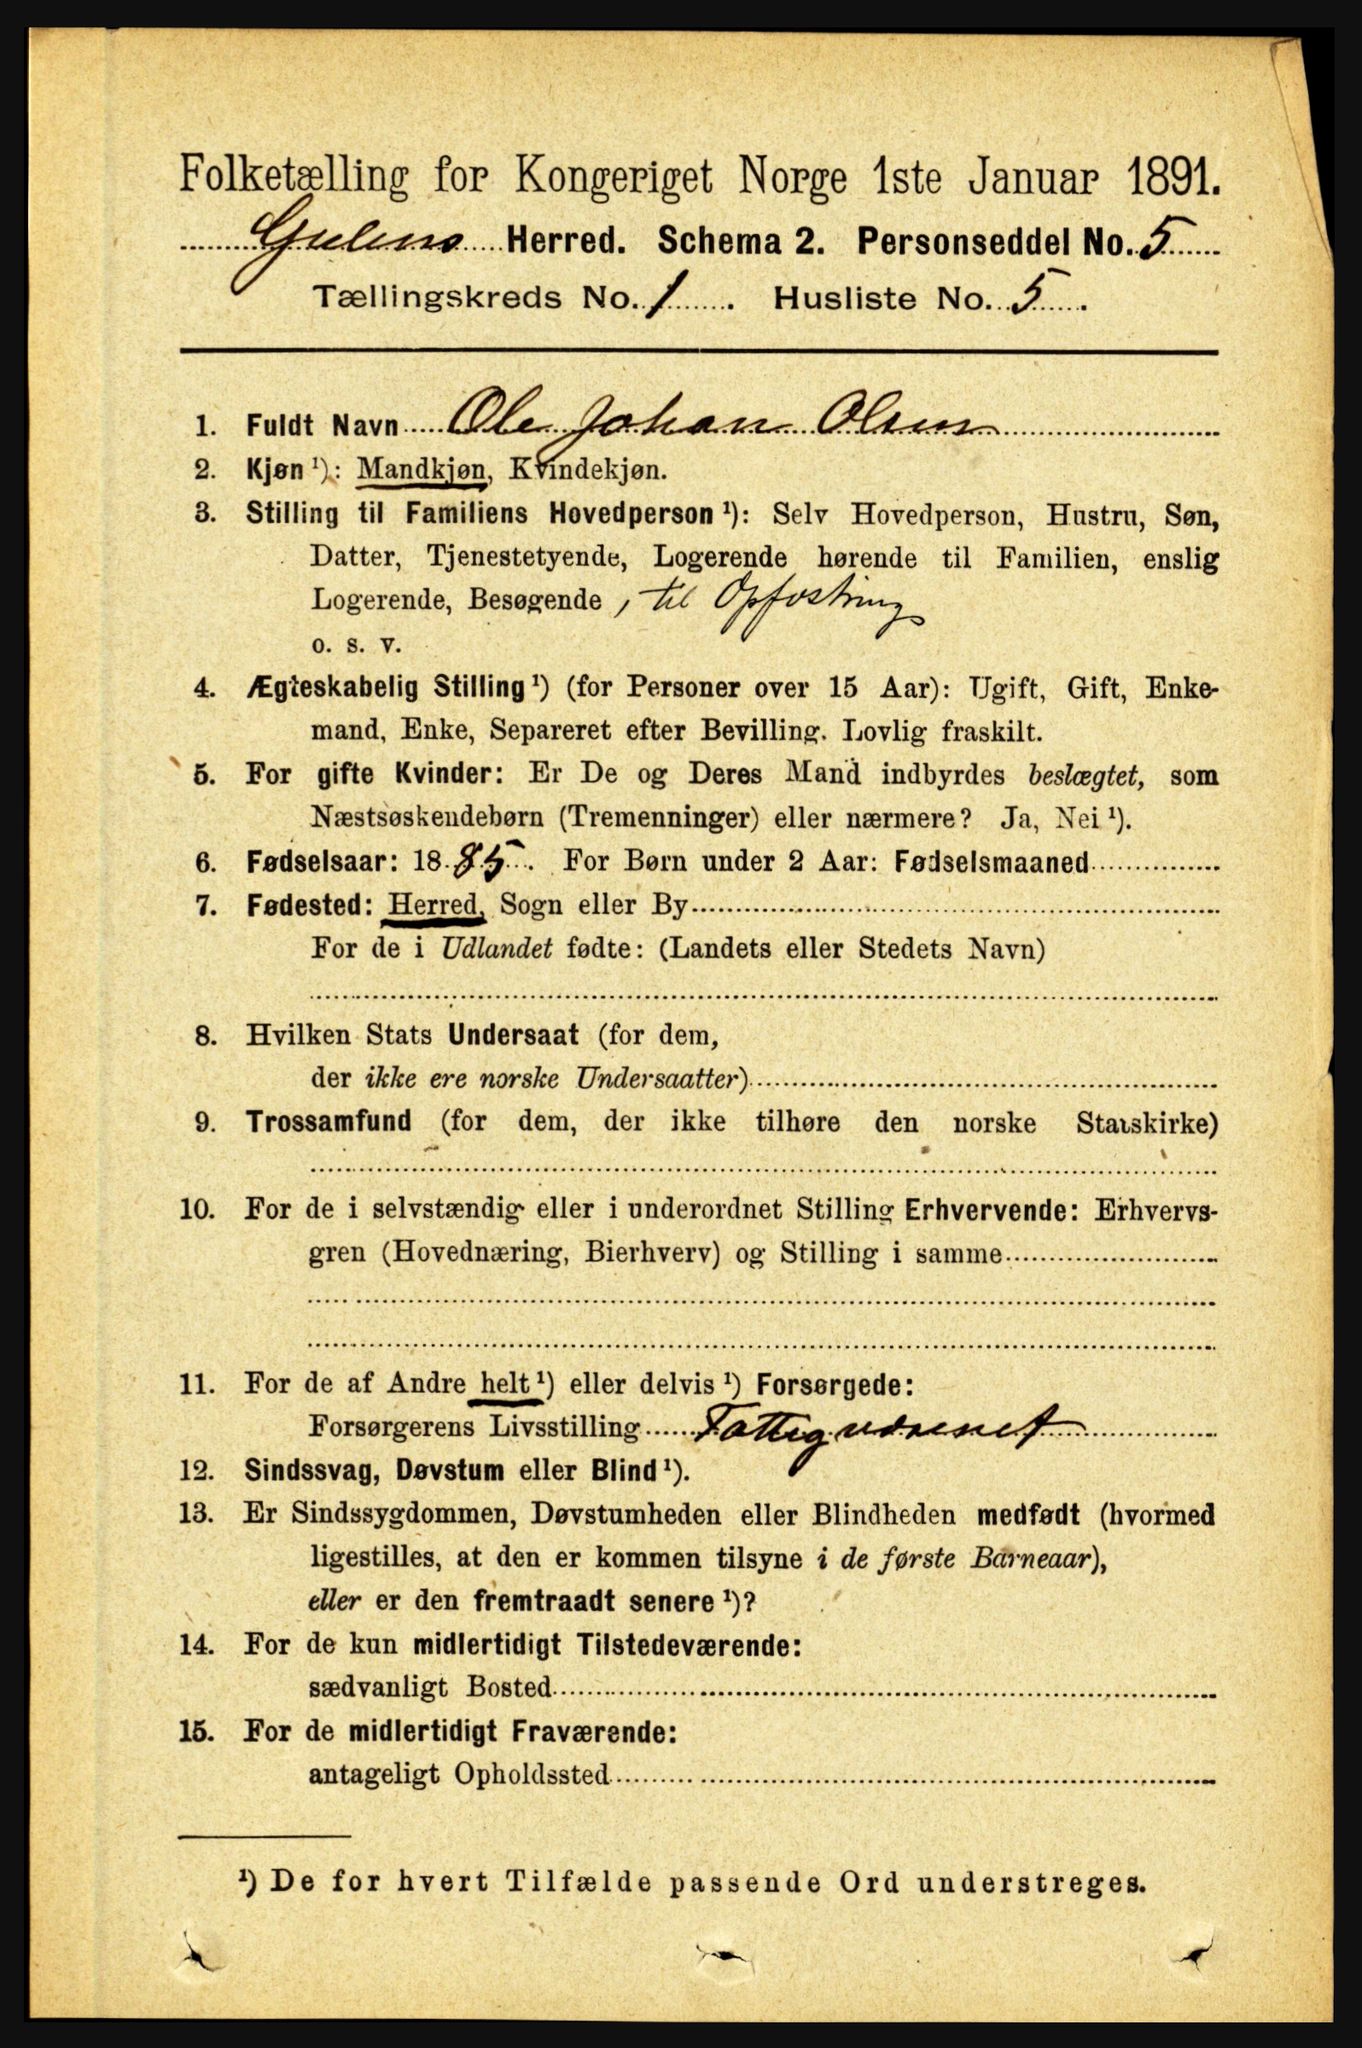 Folketælling for Kongeriget Norge 1ste Januar 1891.
Gulens Herred. Schema 2. Personseddel No. 5
Tællingskreds No. 1. Husliste No. 5.
1. Fuldt Navn Ole Johan Olsen
2. Kjøn ¹): Mandkjøn, Kvindekjøn.
3. Stilling til Familiens Hovedperson ¹): Selv Hovedperson, Hustru, Søn,
Datter, Tjenestetyende, Logerende hørende til Familien, enslig
Logerende, Besøgende, til Opfostring
o. s. v.
4. Ægteskabelig Stilling ¹) (for Personer over 15 Aar): Ugift, Gift, Enke-
mand, Enke, Separeret efter Bevilling. Lovlig fraskilt.
5. For gifte Kvinder: Er De og Deres Mand indbyrdes beslægtet, som
Næstsøskendebørn (Tremenninger) eller nærmere? Ja, Nei ¹).
6. Fødselsaar: 1885. For Børn under 2 Aar: Fødselsmaaned
7. Fødested: Herred, Sogn eller By
For de i Udlandet fødte: (Landets eller Stedets Navn)
8. Hvilken Stats Undersaat (for dem,
der ikke ere norske Undersaatter)
9. Trossamfund (for dem, der ikke tilhøre den norske Statskirke)
10. For de i selvstændig eller i underordnet Stilling Erhvervende: Erhvervs-
gren (Hovednæring, Bierhverv) og Stilling i samme
11. For de af Andre helt ¹) eller delvis ¹) Forsørgede:
Forsørgerens Livsstilling Fattigvæsenet
12. Sindssvag, Døvstum eller Blind ¹).
13. Er Sindssygdommen, Døvstumheden eller Blindheden medfødt (hvormed
ligestilles, at den er kommen tilsyne i de første Barneaar),
eller er den fremtraadt senere ¹)?
14. For de kun midlertidigt Tilstedeværende:
sædvanligt Bosted
15. For de midlertidigt Fraværende:
antageligt Opholdssted
¹) De for hvert Tilfælde passende Ord understreges.